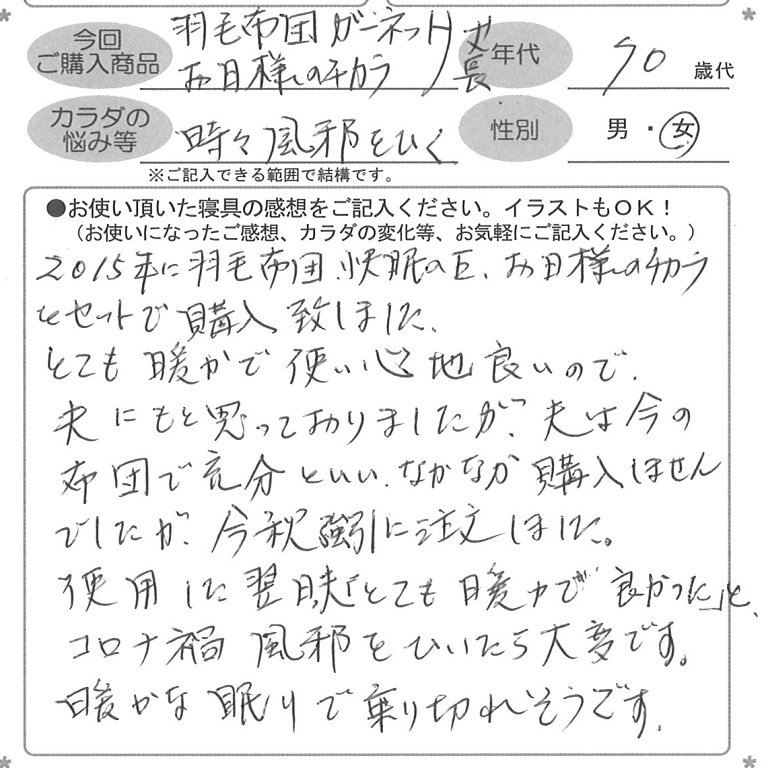 今回
ご購入商品
羽毛布団 ガーネット
お日様のチカラ
丈長
年代
70 歳代
カラダの
悩み等
時々風邪をひく
性別
男・女
※ご記入できる範囲で結構です。
●お使い頂いた寝具の感想をご記入ください。イラストもOK!
(お使いになったご感想、カラダの変化等、お気軽にご記入ください。)
2015年に羽毛布団、快眠の匠、お日様のチカラ
をセットで購入致しました、
とても暖かで使い心地良いので、
夫にもと思っておりましたが、夫は今の
布団で充分といい、なかなか購入しません
でしたが、今秋強引に注文しました。
使用した翌日夫「とても暖かで 良かった」と、
コロナ禍 風邪をひいたら大変です。
暖かな眠りで乗り切れそうです。